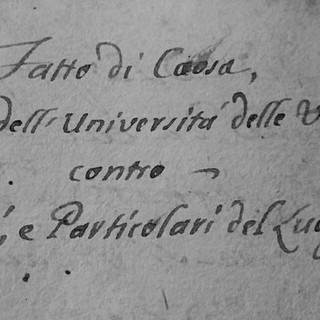 Fatto di Caosa,
dell' Università delle V
contro
i, e Particolari del Lug